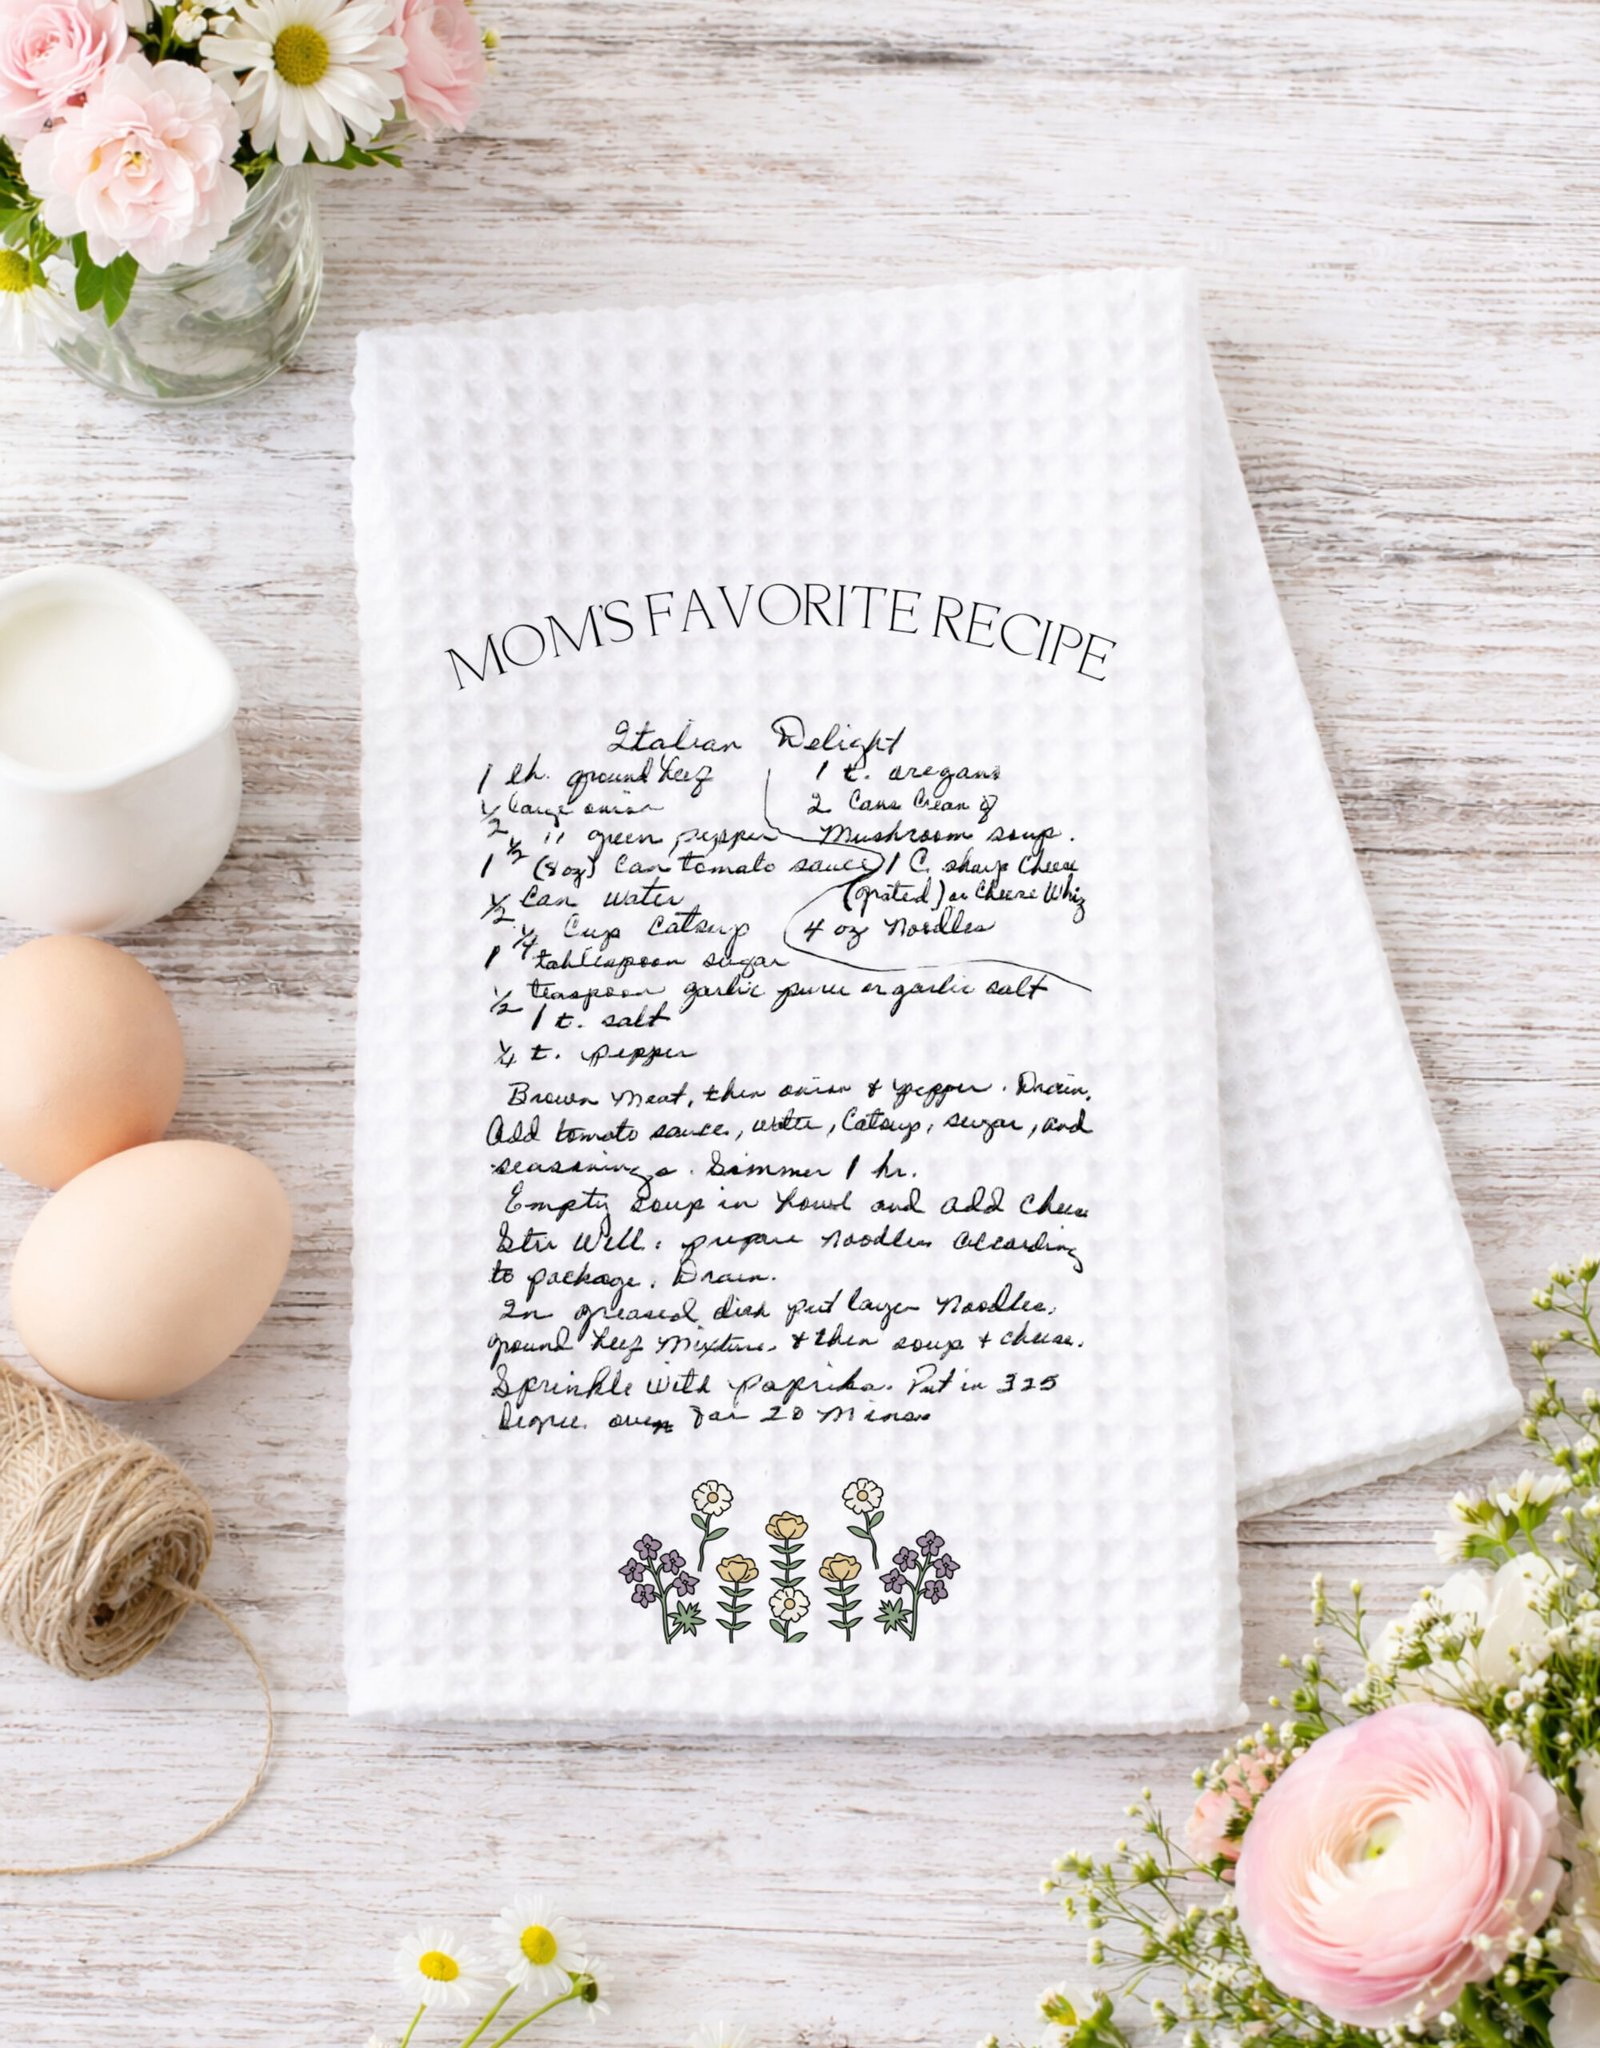 MOM'S FAVORITE RECIPE
Italian Delight
1 lb. ground beef
1/2 large onion
1/2 " green pepper
1 (8 oz) Can tomato sauce
1/2 Can water
1/4 Cup Catsup
1 tablespoon sugar
1/2 teaspoon garlic puree or garlic salt
1 t. salt
1/4 t. pepper
1 t. oregano
2 Cans Cream of
Mushroom soup.
1 C. sharp Cheese
(grated) or Cheese Whiz
4 oz Noodles
Brown Meat, then onion & pepper. Drain.
Add tomato sauce, water, Catsup, sugar, and
seasonings. Simmer 1 hr.
Empty soup in bowl and add Cheese
Stir Well. prepare Noodles according
to package. Drain.
In greased dish put layer Noodles,
ground beef Mixture, & then soup & cheese.
Sprinkle With paprika. Put in 325
degree oven for 20 Mins.